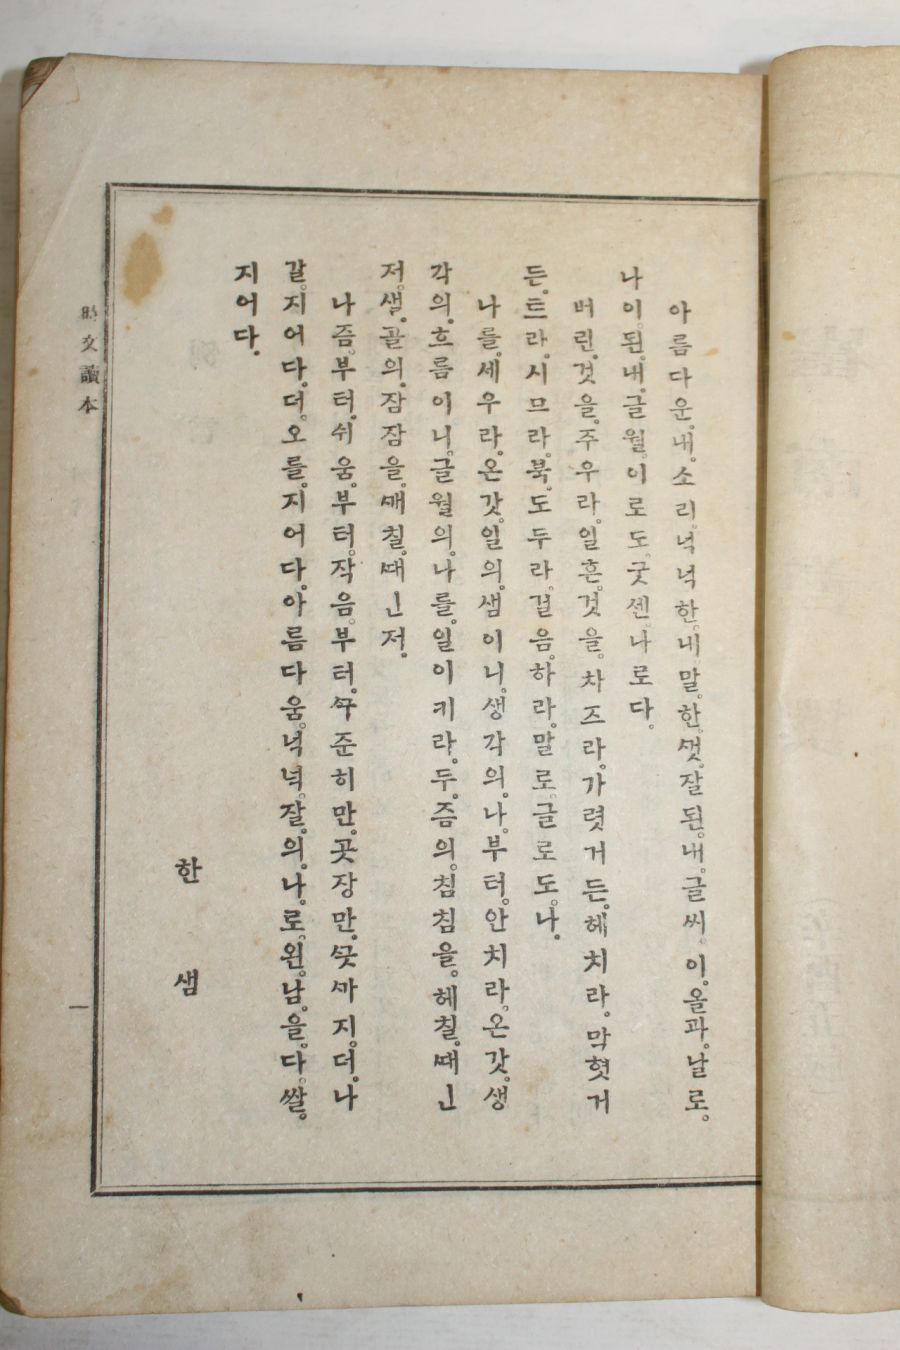 아름다운。내。소리。넉넉한。내말。한。ᄭᅥᆺ。잘된。내。글씨。이。올과。날로。
나이。된。내。글월。이로도。굿센。나로다。
버린。것을。주우라。일흔。것을。차즈라。가렷거든。헤치라。막혓거
든。트라。시므라。북。도두라。걸음。하라。말로。글로도。나。
나를。세우라。온갓。일의。샘이니。생각의。나。부터。안치라。온갓。생
각의。흐름이니。글월의。나를。일이키라。두。즘의。침침을。헤칠。ᄯᅢ 인
저。샐。골의。잠잠을。ᄭᅢ칠。ᄯᅢ 인저。
나즘。부터。쉬움。부터。작음。부터。ᄭᅮ준히만。곳장만。ᄭᅳᆺᄭᅡ지。더。나
갈。지어다。더。오를。지어다。아름다움。넉넉。잘의。나。로。왼。남。을。다。쌀。
지어다。
한샘
時文讀本
一